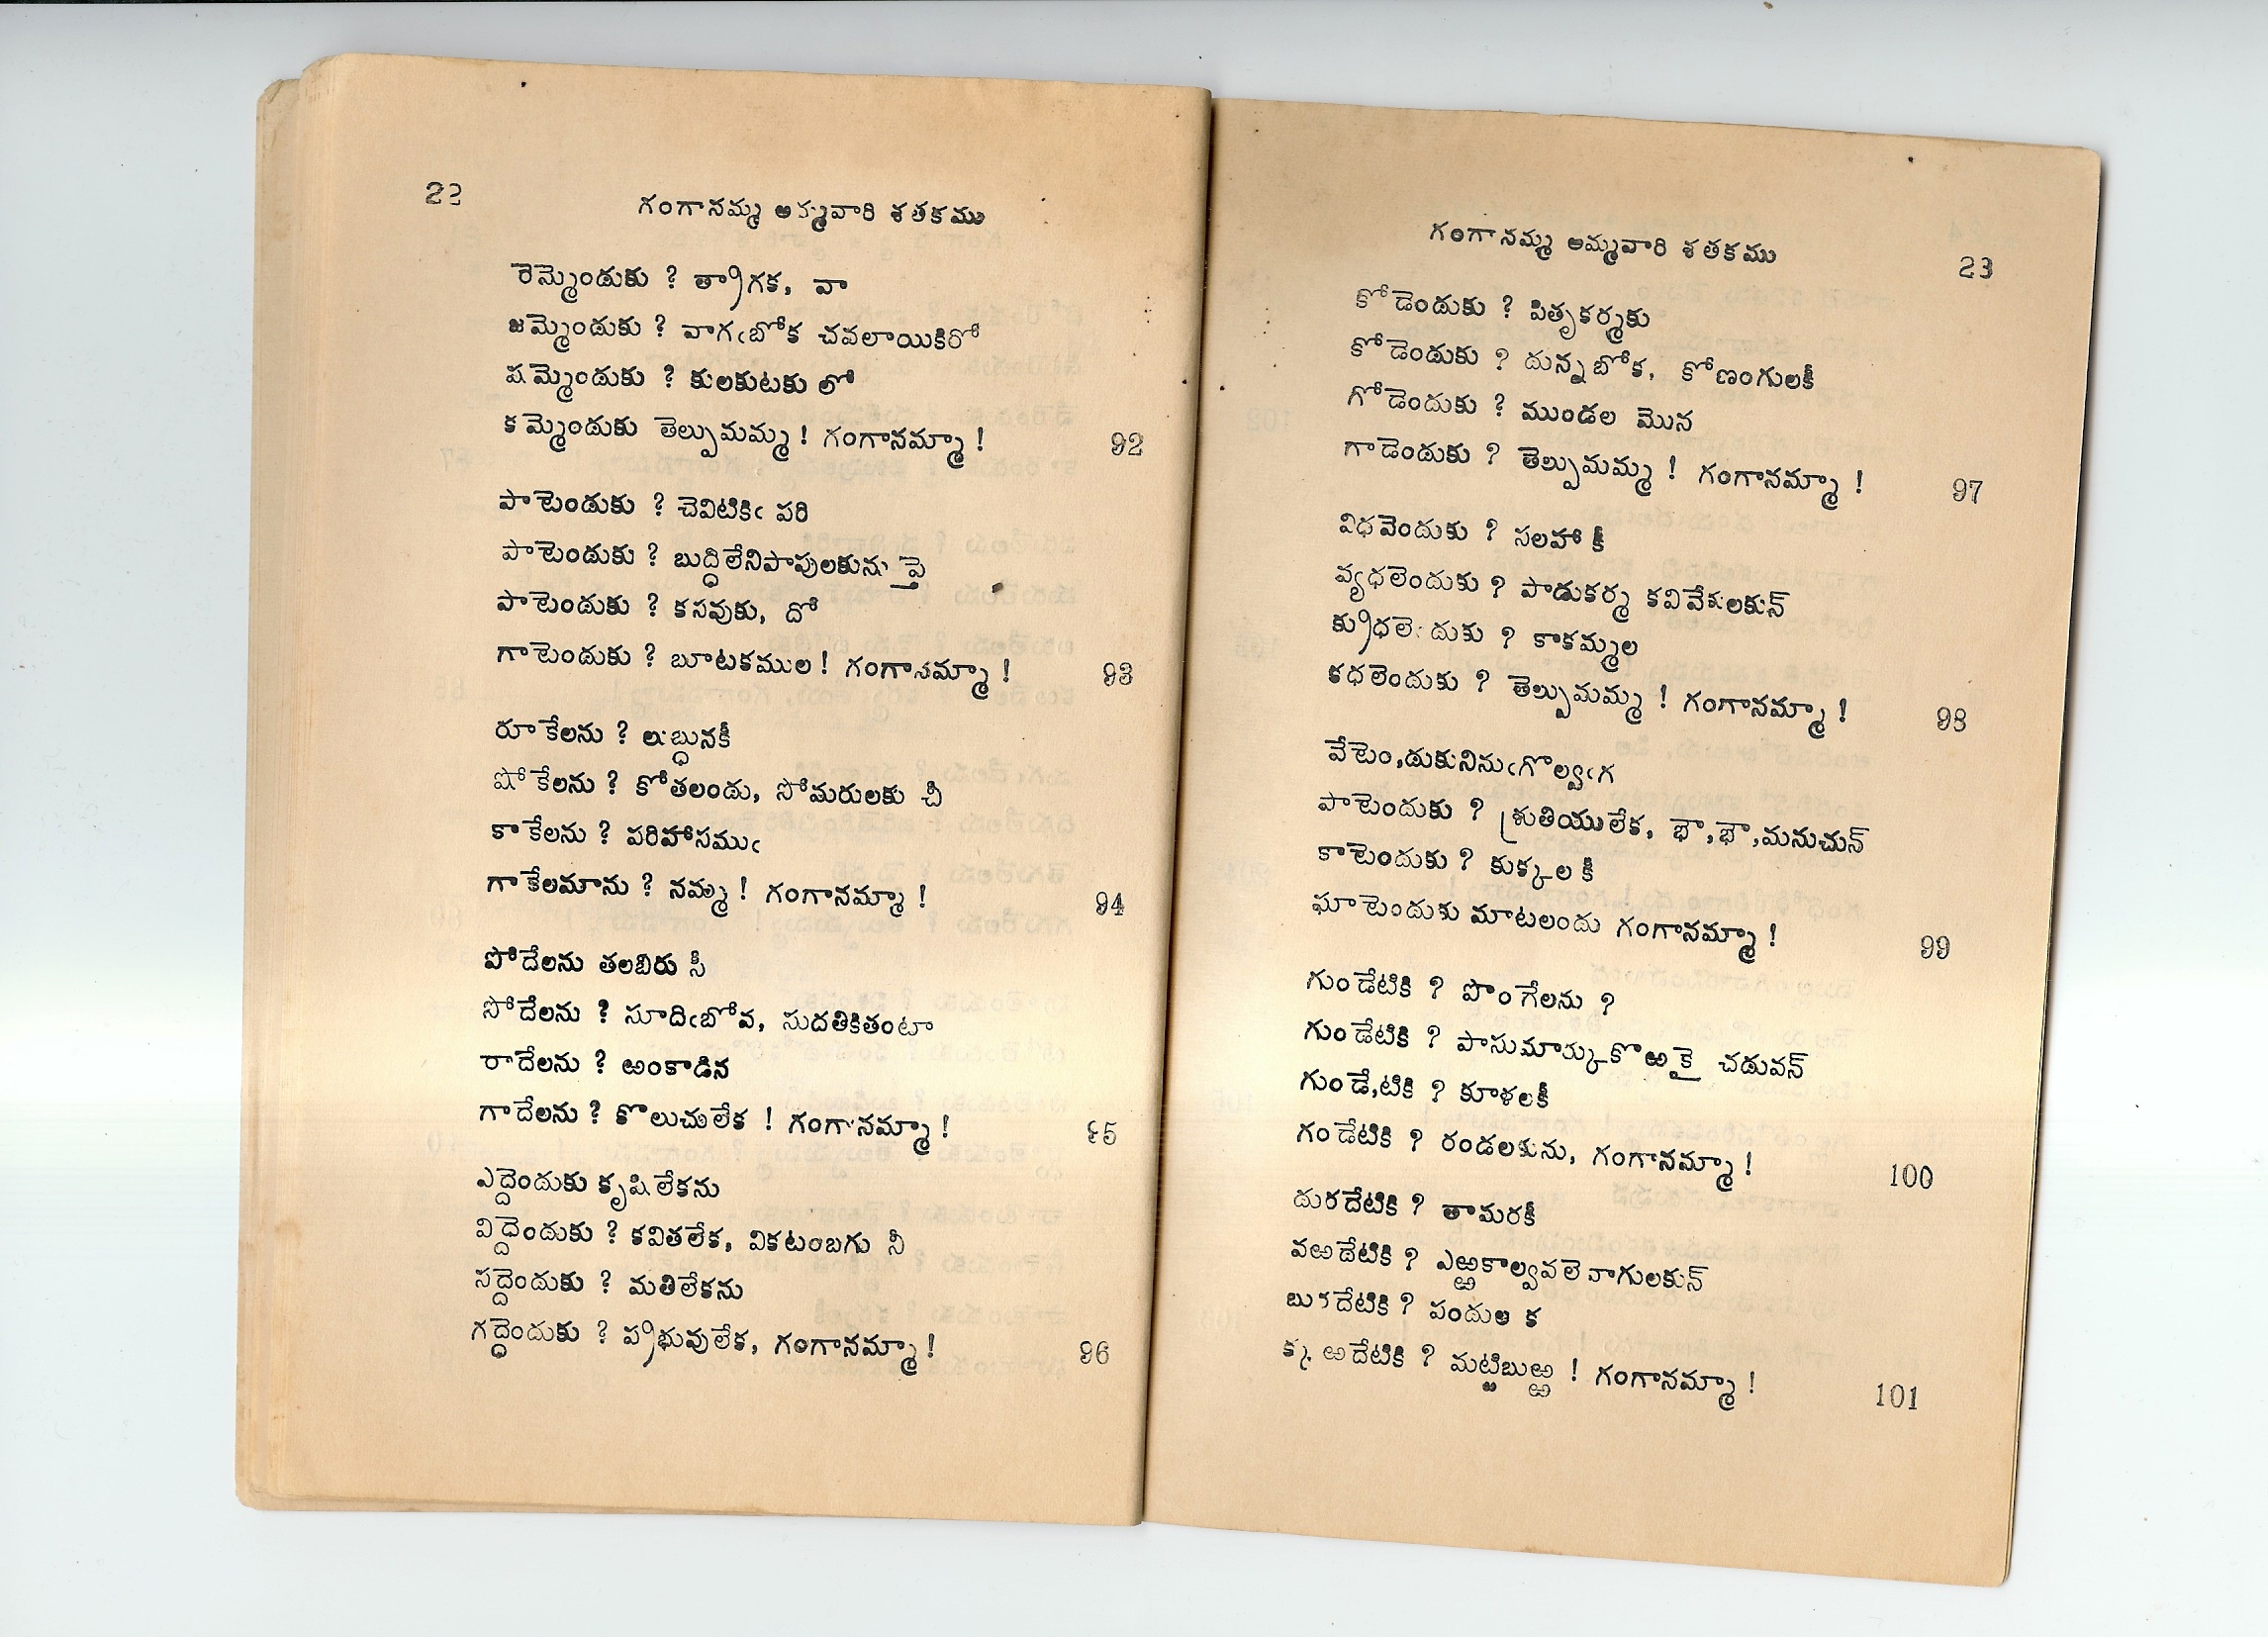 22
గంగానమ్మ అమ్మవారి శతకము
రెమ్మెందుకు ? త్రాగక, వా
జమ్మెందుకు ? వాగఁబోక చవలాయికిరో
షమ్మెందుకు ? కులకుటకు లో
కమ్మెందుకు తెల్పుమమ్మ ! గంగానమ్మా !
92
పాటెందుకు ? చెవిటికిఁ పరి
పాటెందుకు ? బుద్ధిలేనిపాపులకును పై
పాటెందుకు ? కసవుకు, దో
గాటెందుకు ? బూటకముల ! గంగానమ్మా !
93
రూకేలను ? లుబ్ధునకీ
షోకేలను ? కోతలందు, సోమరులకు చీ
కాకేలను ? పరిహాసముఁ
గాకేలమాను ? నమ్మ ! గంగానమ్మా !
94
పోదేలను తలబిరు సీ
సోదేలను ? సూదిఁబోవ, సుదతికితంటా
రాదేలను ? అంకాడిన
గాదేలను ? కొలుచులేక ! గంగానమ్మా !
95
ఎద్దెందుకు కృషి లేకను
విద్దెందుకు ? కవితలేక, వికటంబగు నీ
సద్దెందుకు ? మతిలేకను
గద్దెందుకు ? ప్రభువులేక, గంగానమ్మా !
96
గంగానమ్మ అమ్మవారి శతకము
23
కోడెందుకు ? పితృకర్మకు
కోడెందుకు ? దున్నబోక, కోణంగులకీ
గోడెందుకు ? ముండల మొన
గాడెందుకు ? తెల్పుమమ్మ ! గంగానమ్మా !
97
విధవెందుకు ? సలహాకీ
వ్యధలెందుకు ? పాడుకర్మ కవివేకులకున్
క్రుధలెందుకు ? కాకమ్మల
కధలెందుకు ? తెల్పుమమ్మ ! గంగానమ్మా !
98
వేటెం,దుకునినుఁగొల్వఁగ
పాటెందుకు ? శ్రుతియులేక, భౌ,భౌ,మనుచున్
కాటెందుకు ? కుక్కలకీ
ఘాటెందుకు మాటలందు గంగానమ్మా !
99
గుండేటికి ? పొంగేలను ?
గుండేటికి ? పాసుమార్కుకొఱకై చడువన్
గుండే,టికి ? కూళలకీ
గండేటికి ? రండలకును, గంగానమ్మా !
100
దురదేటికి ? తామరకీ
వఱదేటికి ? ఎఱ్ఱకాల్వవలె వాగులకున్
బురదేటికి ? పందుల క
క్కఱదేటికి ? మట్టిబుఱ్ఱ ! గంగానమ్మా !
101